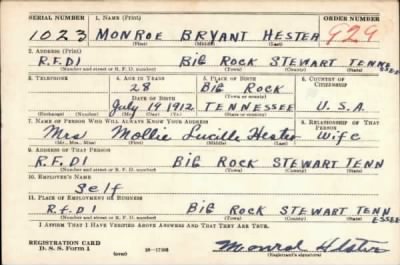 SERIAL NUMBER 1. NAME (Print) ORDER NUMBER
1023 MONROE BRYANT HESTER 929
(First) (Middle) (Last)
2. ADDRESS (Print)
R.F.D1 BIG ROCK STEWART TENNESSEE
(Number and street or R. F. D. number) (Town) (County) (State)
3. TELEPHONE 4. AGE IN YEARS 5. PLACE OF BIRTH 6. COUNTRY OF CITIZENSHIP
28 BIG ROCK
DATE OF BIRTH (Town or county)
July 19 1912 TENNESSEE U.S.A.
(Exchange) (Number) (Mo.) (Day) (Yr.) (State or country)
7. NAME OF PERSON WHO WILL ALWAYS KNOW YOUR ADDRESS 8. RELATIONSHIP OF THAT PERSON
Mrs Mollie Lucille Hester Wife
(Mr., Mrs., Miss) (First) (Middle) (Last)
9. ADDRESS OF THAT PERSON
R.F.D1 BIG ROCK STEWART TENN
(Number and street or R. F. D. number) (Town) (County) (State)
10. EMPLOYER'S NAME
Self
11. PLACE OF EMPLOYMENT OR BUSINESS
R.F.D1 BIG ROCK STEWART TENNESSEE
(Number and street or R. F. D. number) (Town) (County) (State)
I AFFIRM THAT I HAVE VERIFIED ABOVE ANSWERS AND THAT THEY ARE TRUE.
REGISTRATION CARD
D. S. S. Form 1 (over) Monroe Hester
(Registrant's signature)